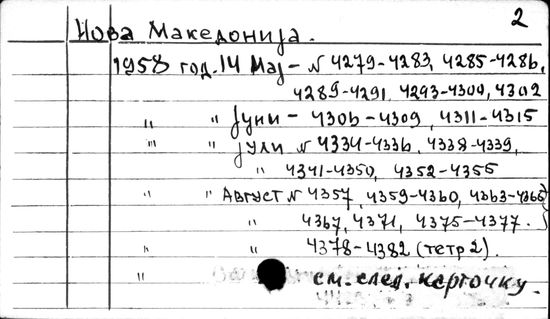 2
Нова Македонија.
1958 год. 14 Мај - N 4279-4283, 4285-4286,
4289-4291, 4293-4300, 4302
" " Јуни - 4306-4309, 4311-4315
" " Јули N 4334-4336, 4338-4339,
" 4341-4350, 4352-4355
" " Август N 4357, 4359-4360, 4363-4365
" 4367, 4371, 4375-4377.
" " 4378-4382 (тетр 2).
" см. след. карточку.